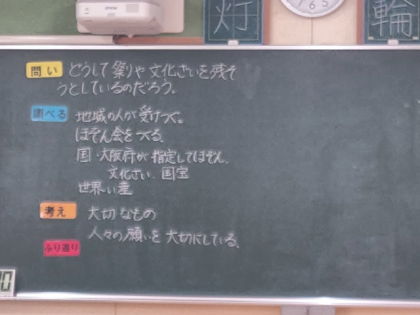 灯
765
輪
問い どうして祭りや文化ざいを残そ
うとしているのだろう。
調べる 地域の人が受けつぐ。
ほぞん会をつくる。
国・大阪府が指定してほぞん。
文化ざい、国宝
世界い産
考え 大切なもの
人々の願いを大切にしている。
ふり返り